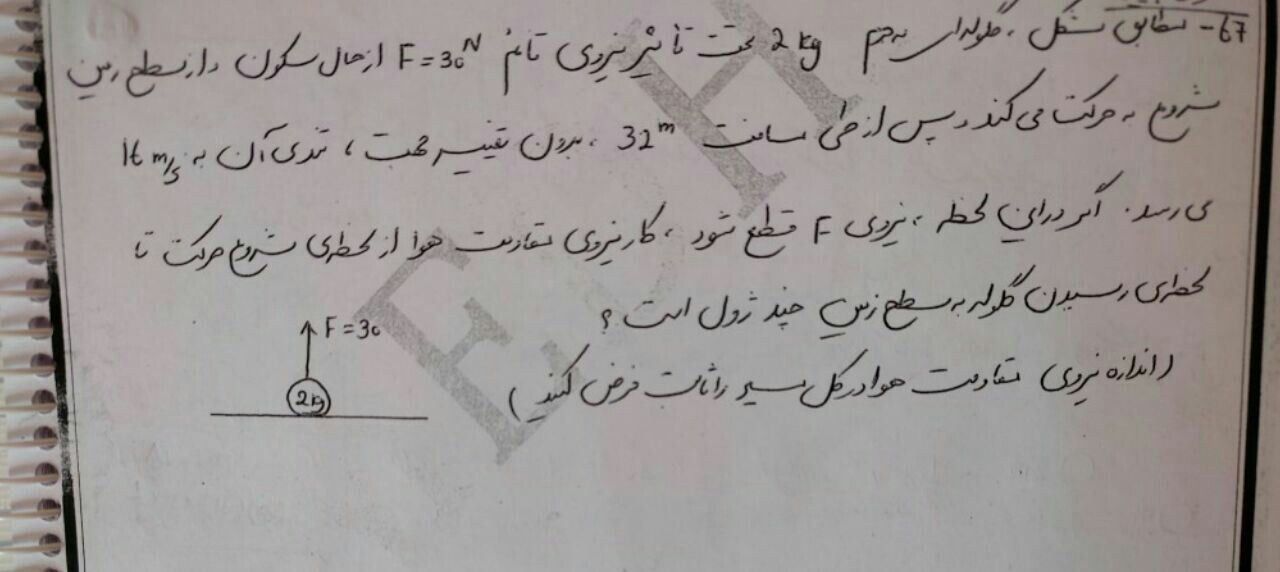 67- مطابق شکل، گلوله‌ای به جرم 2 kg تحت تأثیر نیروی قائم F = 30 N از حال سکون و از سطح زمین
شروع به حرکت می‌کند و پس از طی مسافت 32 m، بدون تغییر جهت، تندی آن به 16 m/s
می‌رسد. اگر در این لحظه، نیروی F قطع شود، کار نیروی مقاومت هوا از لحظه‌ی شروع حرکت تا
لحظه‌ی رسیدن گلوله به سطح زمین چند ژول است؟
(اندازه نیروی مقاومت هوا در کل مسیر را ثابت فرض کنید)
F = 30
2 kg